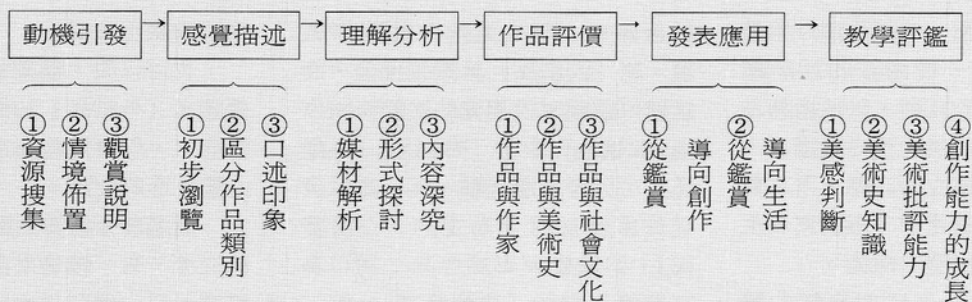 動機引發 → 感覺描述 → 理解分析 → 作品評價 → 發表應用 → 教學評鑑
①資源搜集
②情境佈置
③觀賞說明
①初步瀏覽
②區分作品類別
③口述印象
①媒材解析
②形式探討
③內容深究
①作品與作家
②作品與美術史
③作品與社會文化
①從鑑賞
導向創作
②從鑑賞
導向生活
①美感判斷
②美術史知識
③美術批評能力
④創作能力的成長